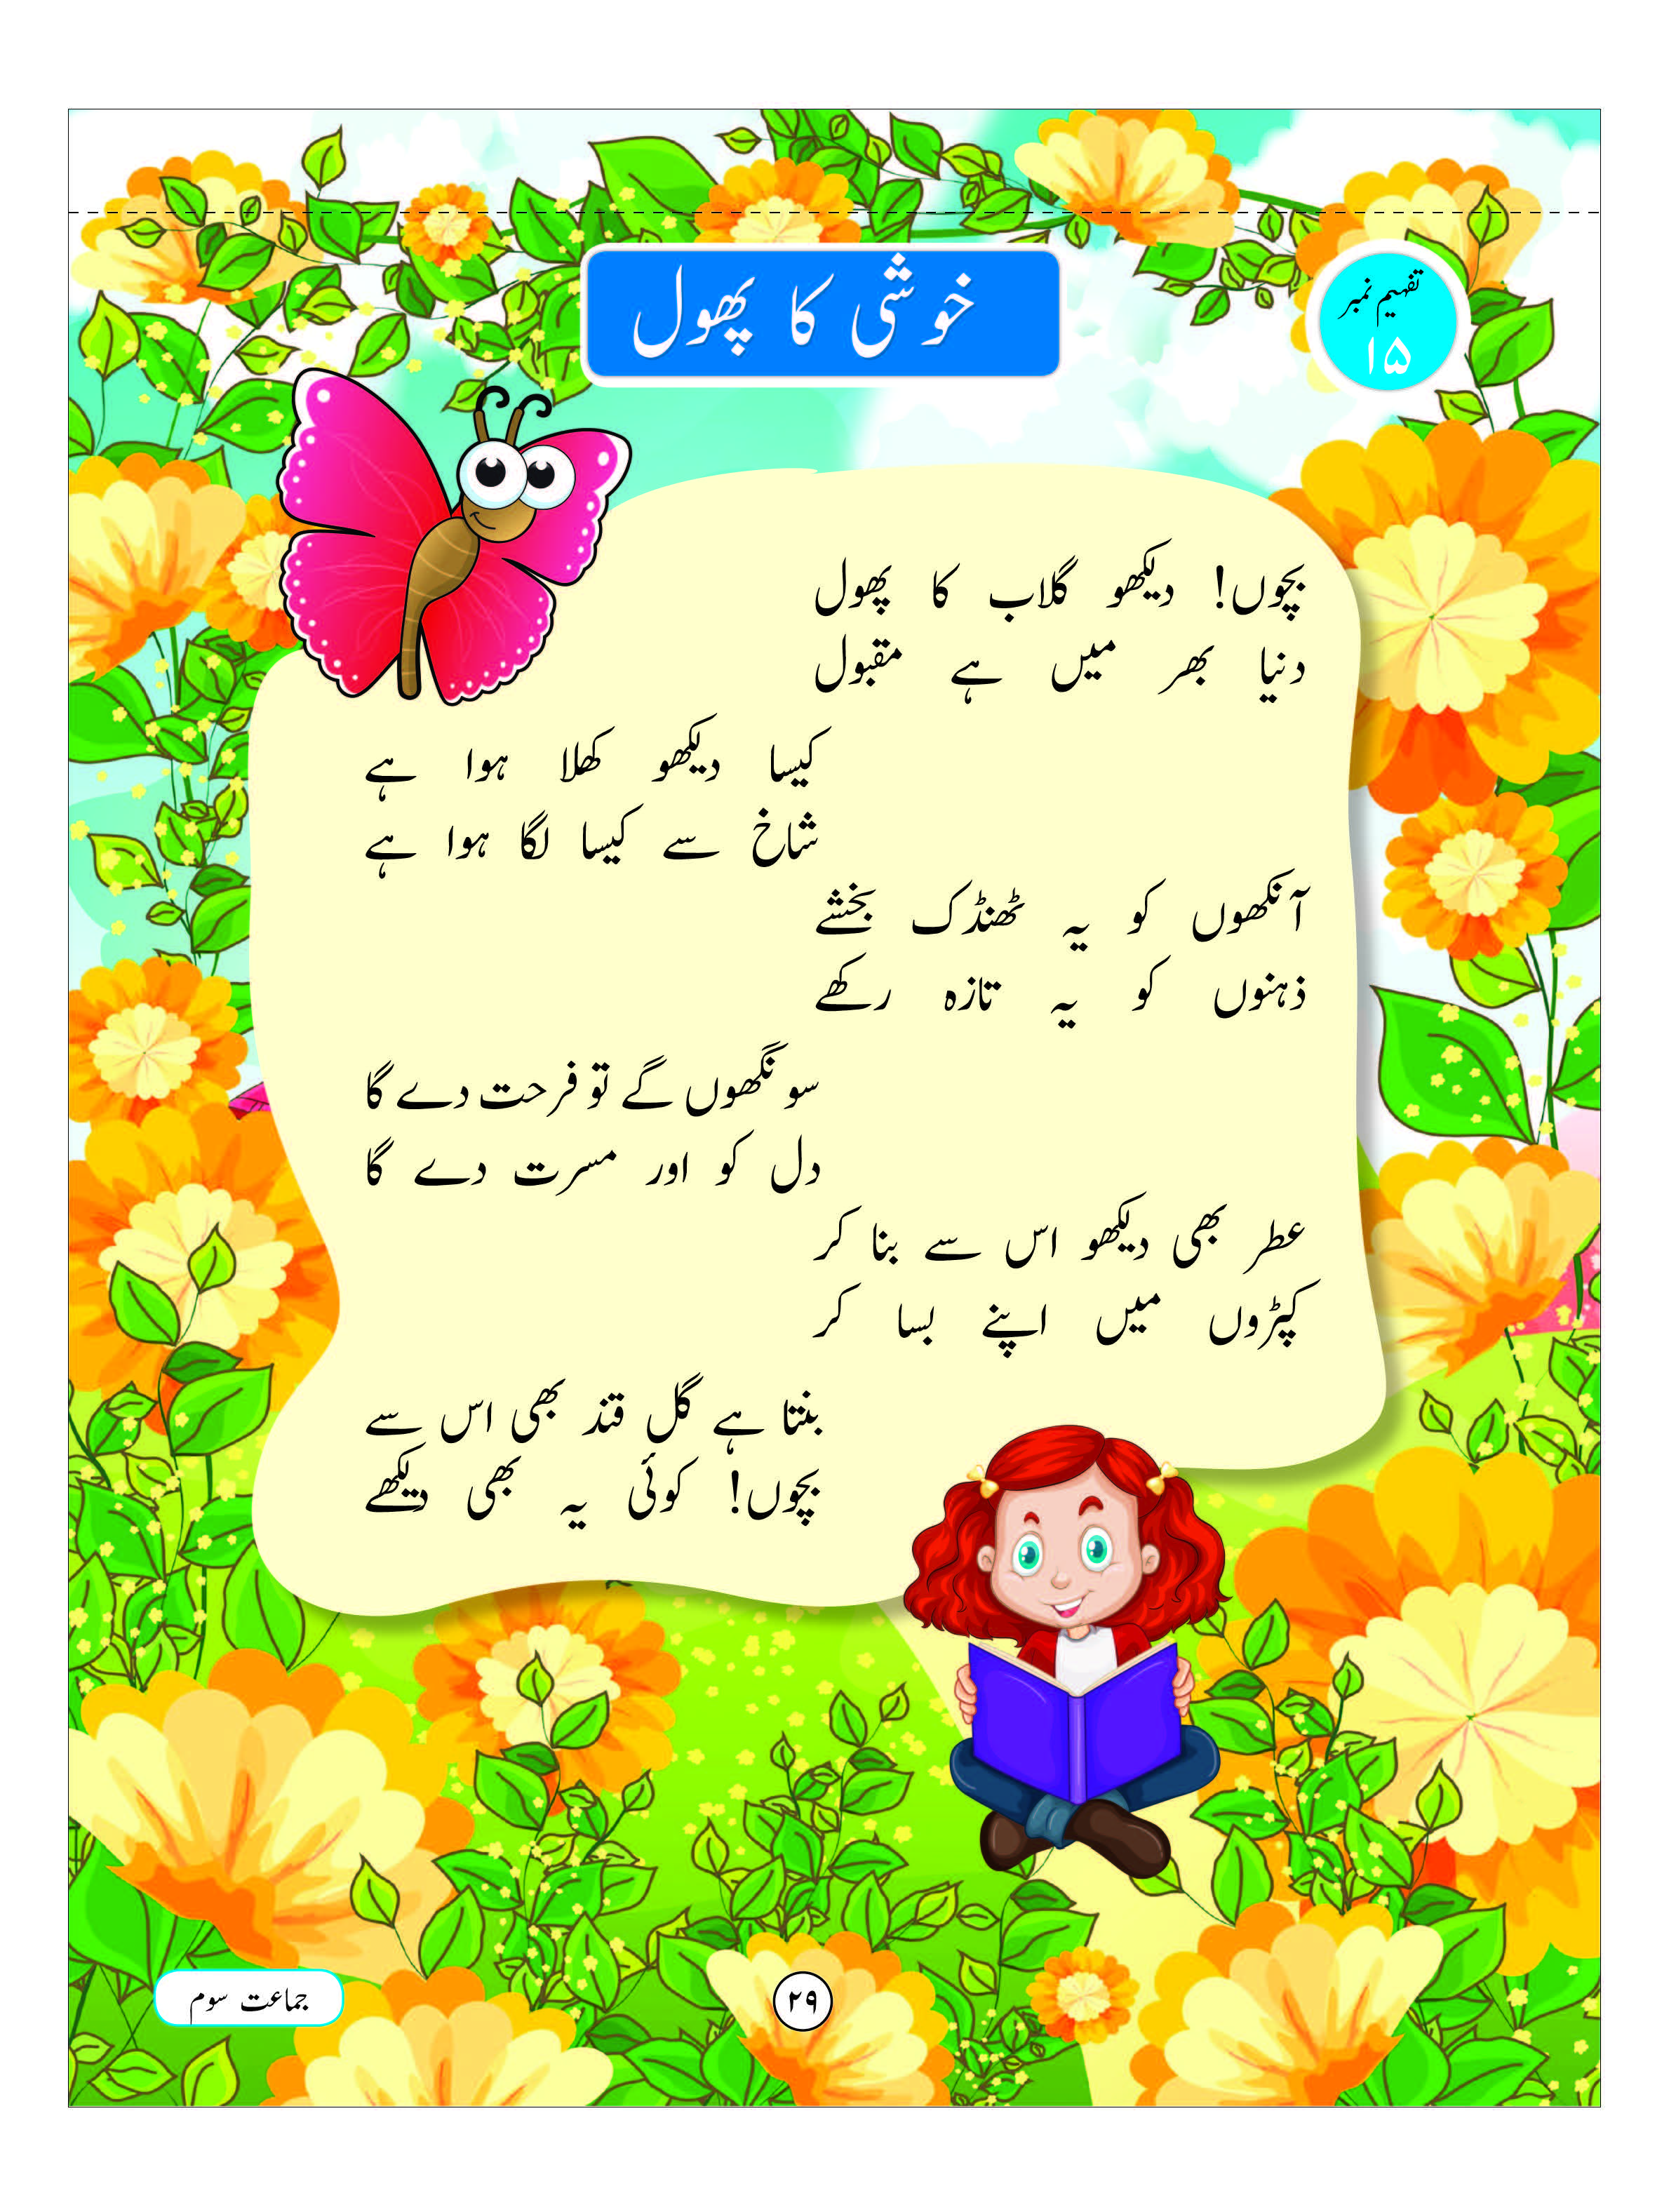 تفہیم نمبر
۱۵
خوشی کا پھول
بچوں! دیکھو گلاب کا پھول
دنیا بھر میں ہے مقبول
کیسا دیکھو کھلا ہوا ہے
شاخ سے کیسا لگا ہوا ہے
آنکھوں کو یہ ٹھنڈک بخشے
ذہنوں کو یہ تازہ رکھے
سونگھوں گے تو فرحت دے گا
دل کو اور مسرت دے گا
عطر بھی دیکھو اس سے بنا کر
کپڑوں میں اپنے بسا کر
بنتا ہے گل قند بھی اس سے
بچوں! کوئی یہ بھی دیکھے
۲۹
جماعت سوم